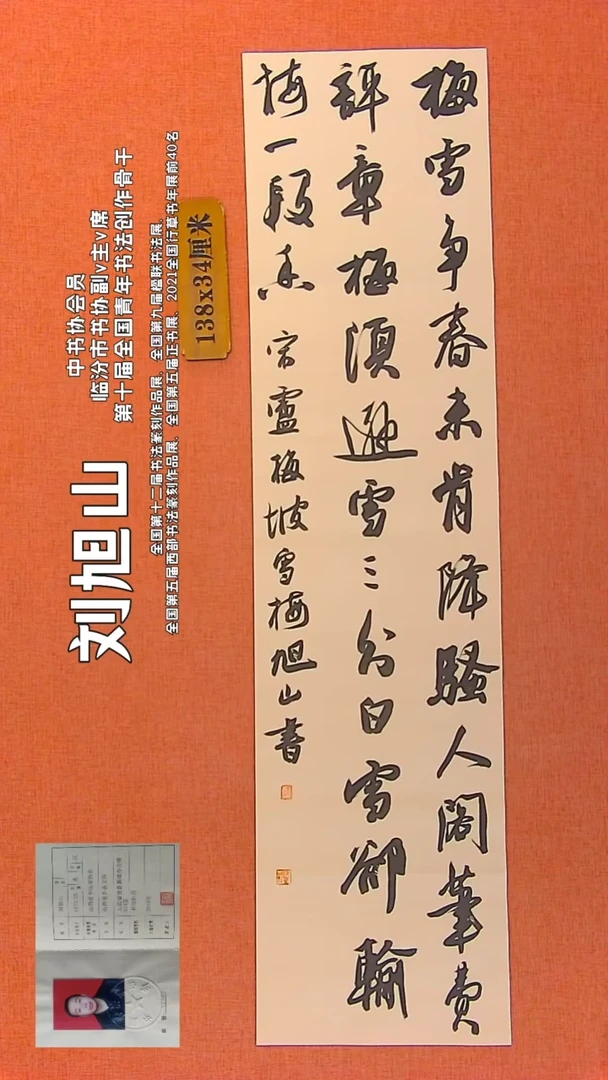 梅雪争春未肯降騷人閣筆費
評章梅須遜雪三分白雪卻輸
梅一段香 宋盧梅坡雪梅旭山書
刘旭山
中书协会员
临汾市书协副v主v席
第十届全国青年书法创作骨干
全国第十二届书法篆刻作品展、全国第九届楹联书法展、
全国第五届西部书法篆刻作品展、全国第五届正书展、2021全国行草书年展前40名
138x34厘米